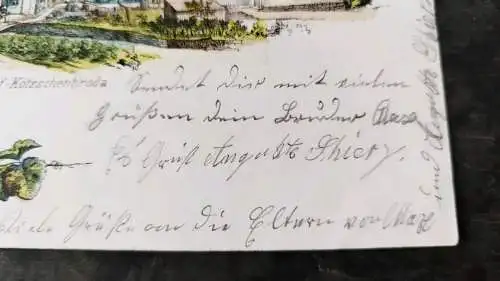 f-Kötzschenbroda
Sendet dir mit vielen
Grüßen dein Bruder Max
Gruß Auguste Thierz.
Viele Grüße an die Eltern von Max
und Auguste